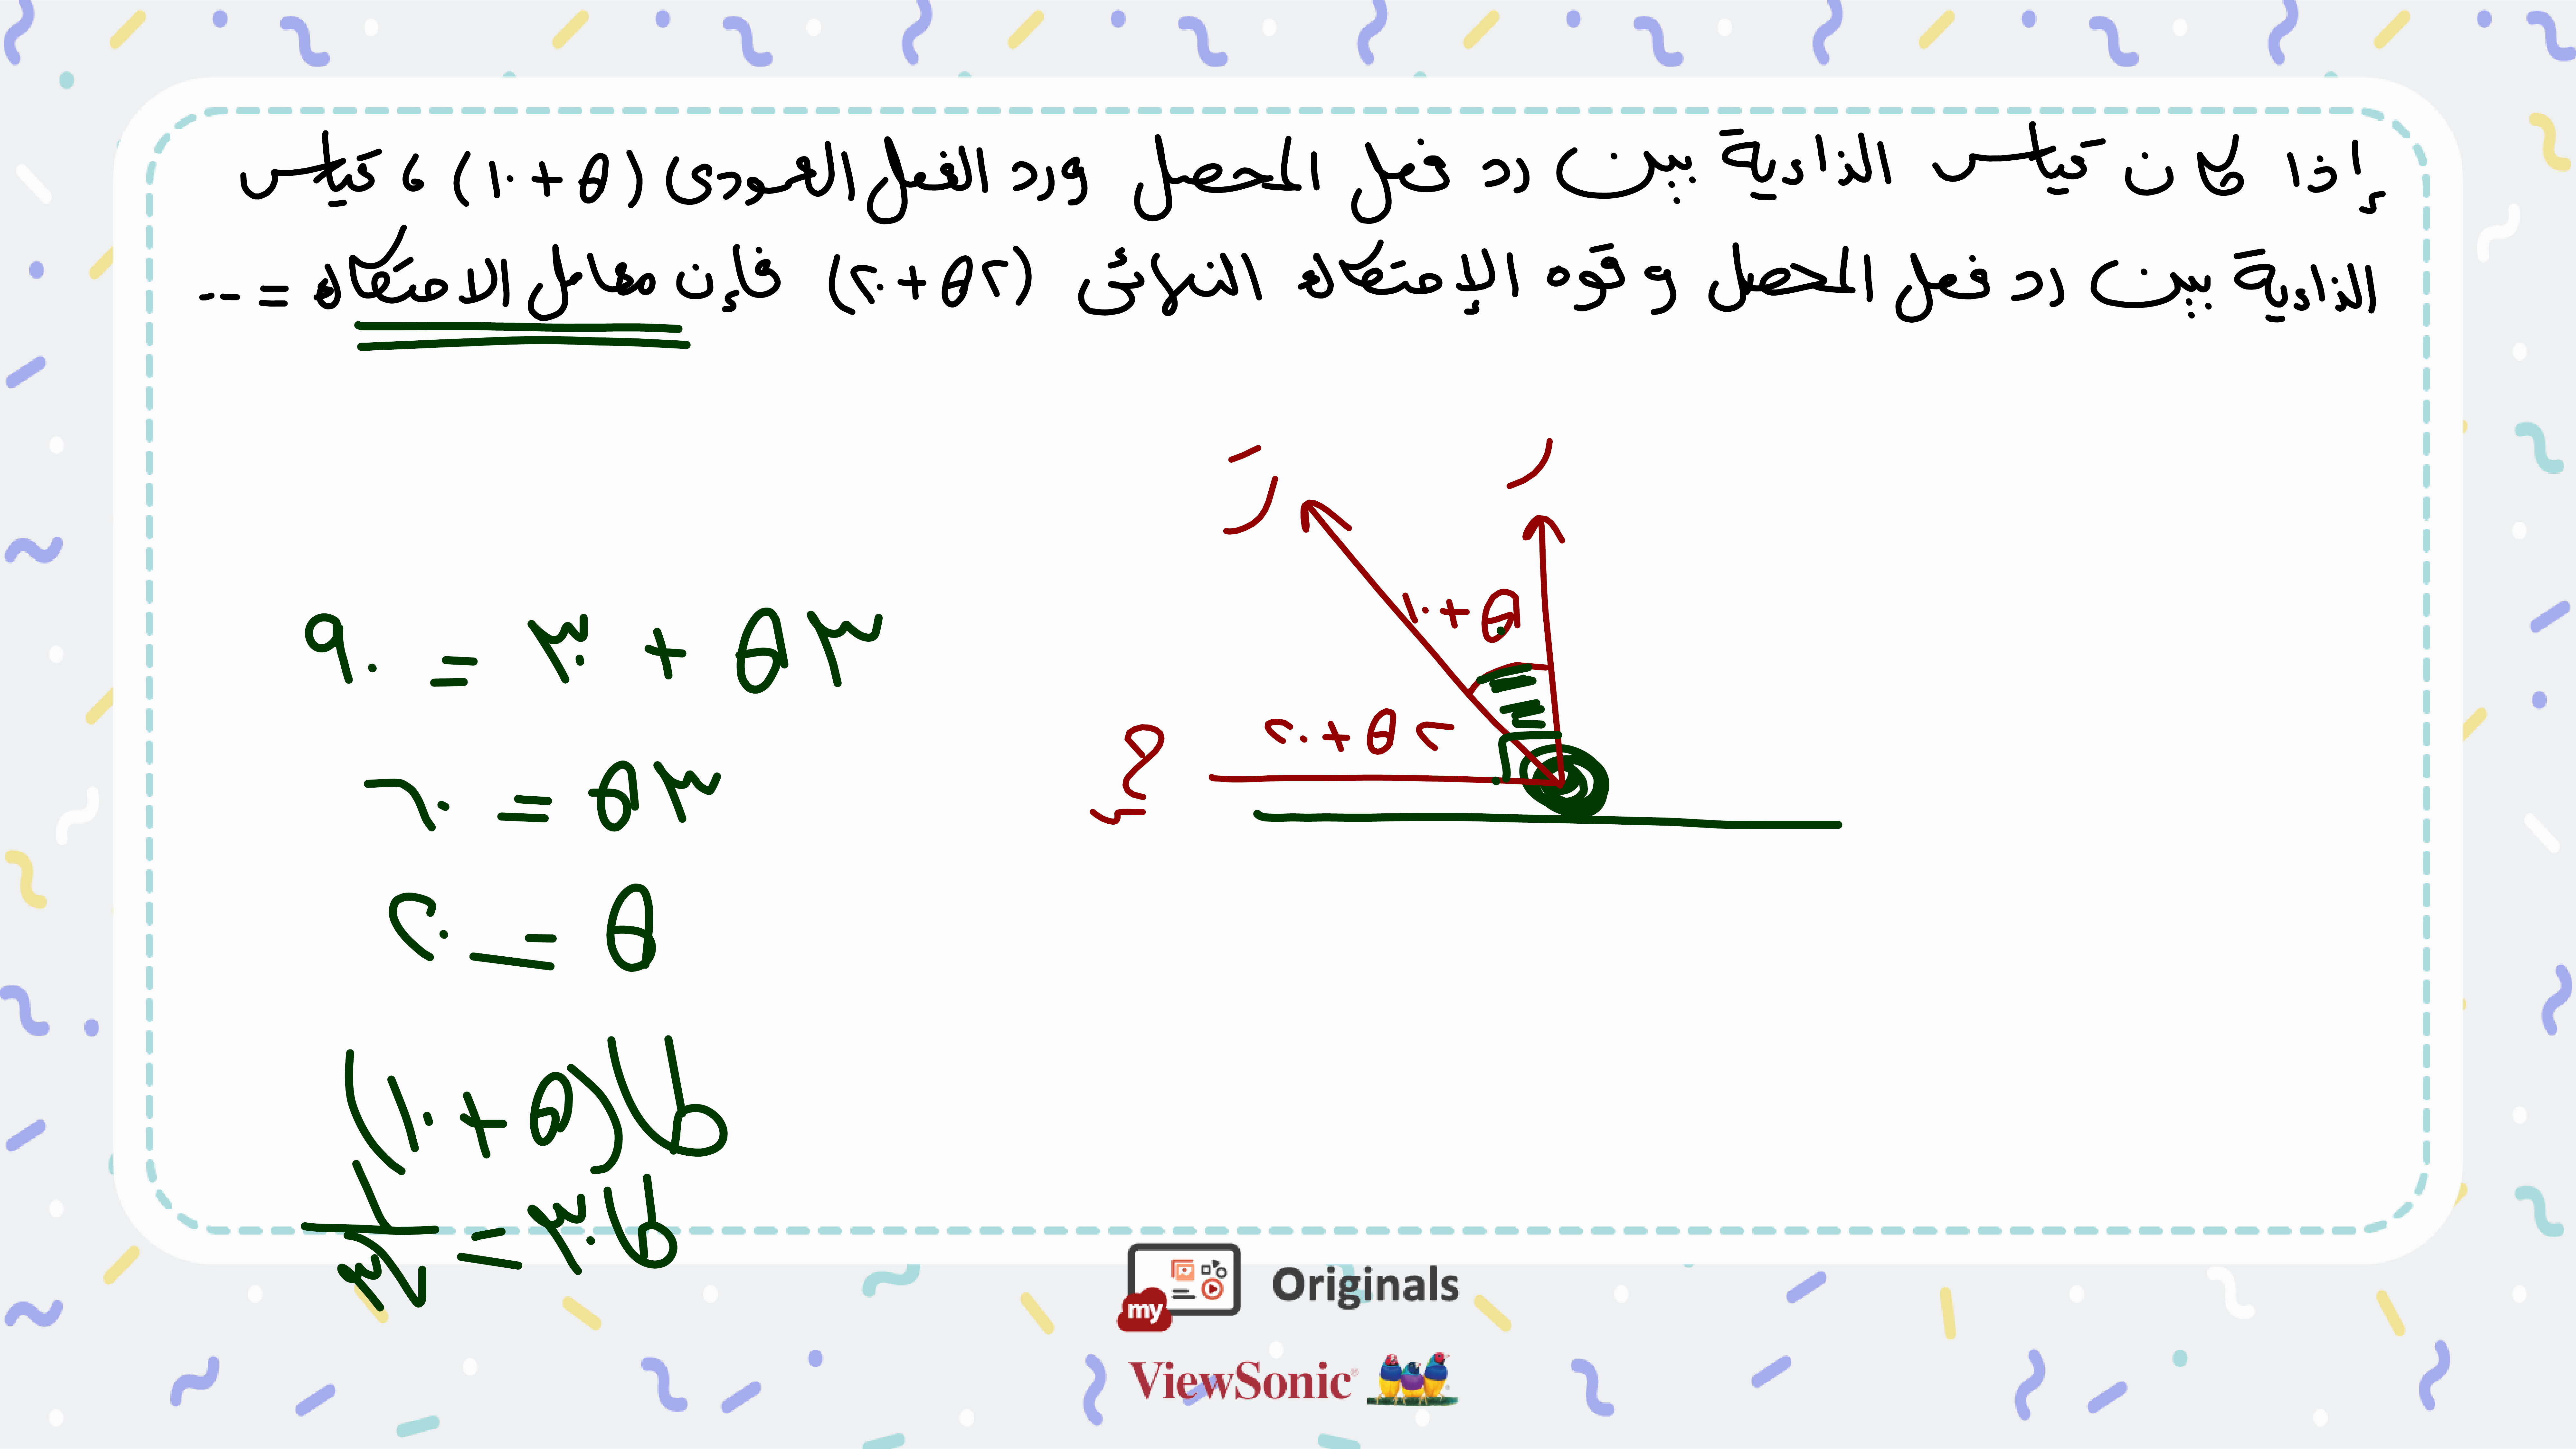 إذا كان قياس الزاوية بين رد فعل المحصل ورد الفعل العمودى (θ + ١٠) ، قياس
الزاوية بين رد فعل المحصل و قوه الإحتكاك النهائى (٢θ + ٢٠) فإن معامل الاحتكاك = --
رَ
ر
θ + ١٠
٢θ + ٢٠
٣θ + ٣٠ = ٩٠
٣θ = ٦٠
θ = ٢٠
ظا(θ + ١٠)
ظا٣٠ = ١/√٣
my Originals
ViewSonic